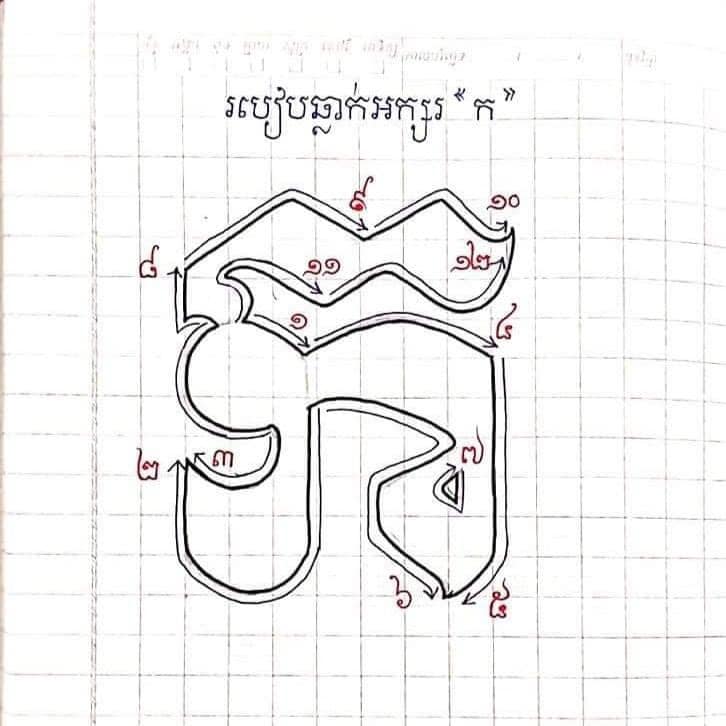 របៀបឆ្លាក់អក្សរ “ ក ”
៩
១០
៨
១១
១២
១
៤
២
៣
៧
៦
៥